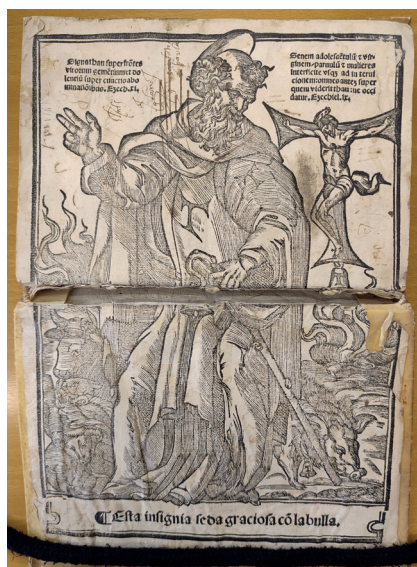 Signa thau super frõtes
virorum gemẽtium et do
lentiũ super cunctis abo
minatiõibus. Ezech. ix.
Senem adolescẽtulũ & vir
ginem: paruulũ & mulieres
interficite vsqz ad inter
cionem: omnem autẽ super
quem videritis thau: ne occi
datis. Ezechiel. ix.
¶ Esta insignia se da graciosa cõ la bulla.